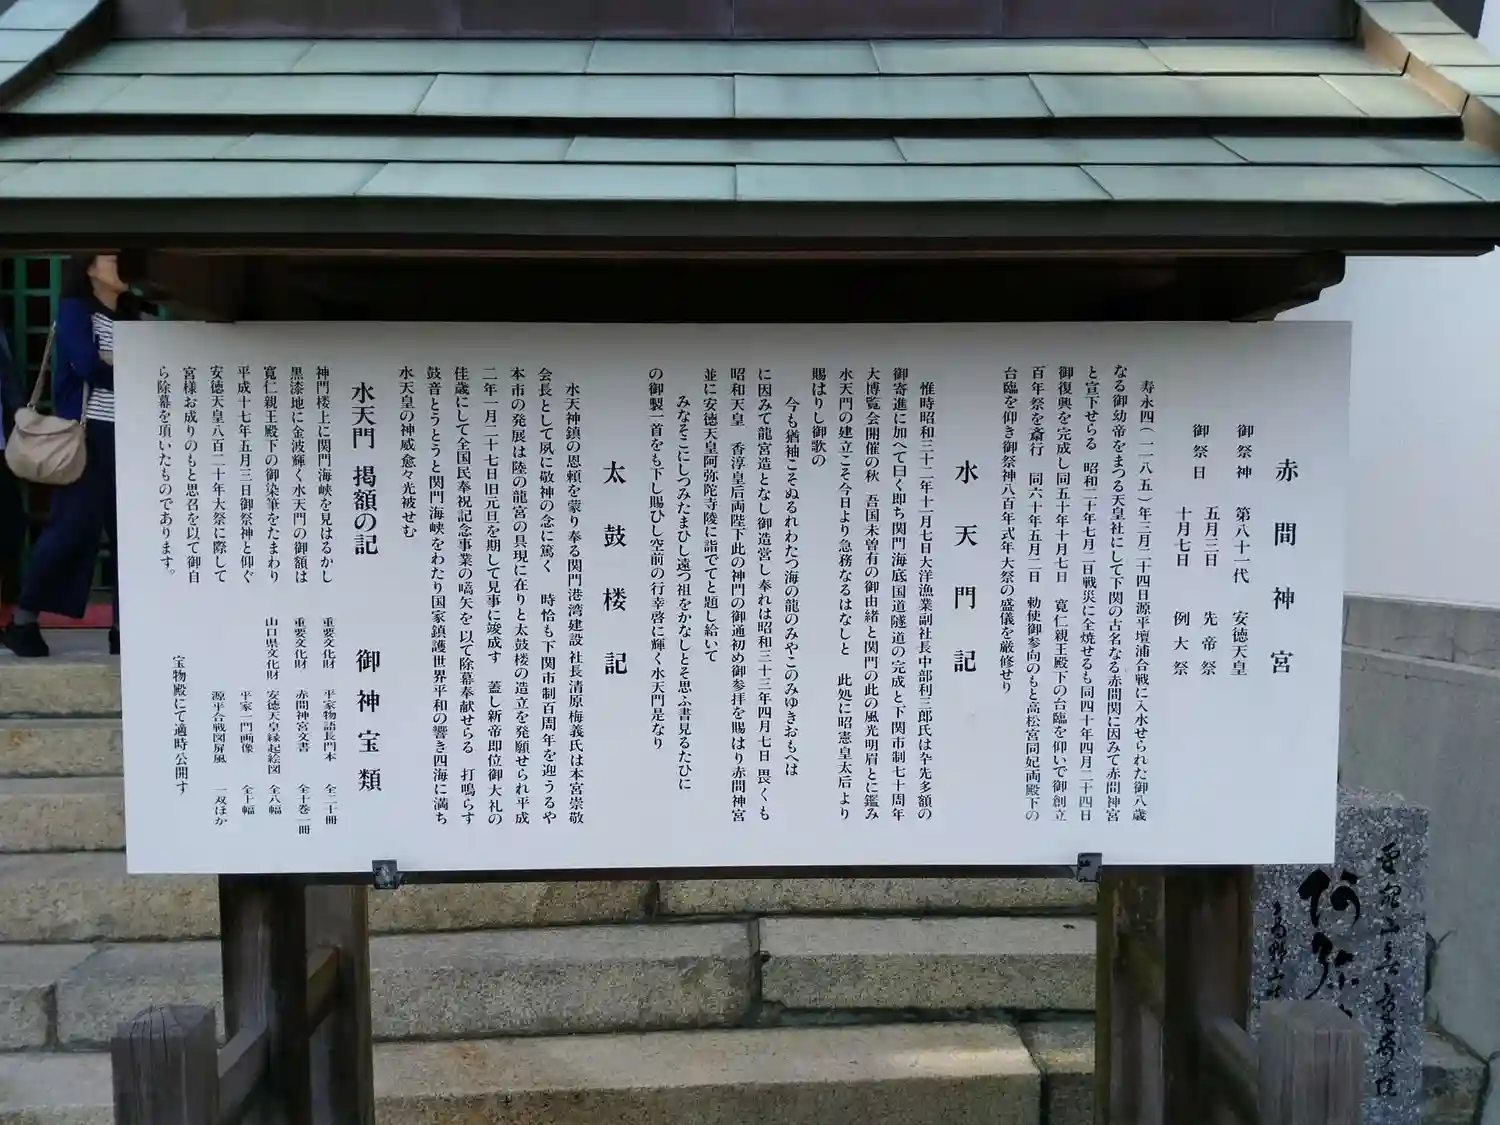 赤間神宮
御祭神　第八十一代　安徳天皇
御祭日　五月三日　先帝祭
十月七日　例大祭
寿永四(一一八五)年三月二十四日源平壇浦合戦に入水せられた御八歳
なる御幼帝をまつる天皇社にして下関の古名なる赤間関に因みて赤間神宮
と宣下せらる　昭和二十年七月二日戦災に全焼せるも同四十年四月二十四日
御復興を完成し同五十年十月七日　寛仁親王殿下の台臨を仰いで御創立
百年祭を斎行　同六十年五月二日　勅使御参向のもと高松宮同妃両殿下の
台臨を仰き御祭神八百年式年大祭の盛儀を厳修せり
水天門記
惟時昭和三十二年十一月七日大洋漁業副社長中部利三郎氏は卒先多額の
御寄進に加へて曰く即ち関門海底国道隧道の完成と下関市制七十周年
大博覧会開催の秋　吾国未曽有の御由緒と関門の此の風光明眉とに鑑み
水天門の建立こそ今日より急務なるはなしと　此処に昭憲皇太后より
賜はりし御歌の
今も猶袖こそぬるれわたつ海の龍のみやこのみゆきおもへは
に因みて龍宮造となし御造営し奉れは昭和三十三年四月七日　畏くも
昭和天皇　香淳皇后両陛下此の神門の御通初め御参拝を賜はり赤間神宮
並に安徳天皇阿弥陀寺陵に詣でてと題し給いて
みなそこにしつみたまひし遠つ祖をかなしとそ思ふ書見るたひに
の御製一首をも下し賜ひし空前の行幸啓に輝く水天門是なり
太鼓楼記
水天神鎮の恩頼を蒙り奉る関門港湾建設　社長清原梅義氏は本宮崇敬
会長として夙に敬神の念に篤く　時恰も下関市制百周年を迎うるや
本市の発展は陸の龍宮の具現に在りと太鼓楼の造立を発願せられ平成
二年一月二十七日旧元旦を期して見事に竣成す　蓋し新帝即位御大礼の
佳歳にして全国民奉祝記念事業の嚆矢を以て除幕奉献せらる　打鳴らす
鼓音とうとうと関門海峡をわたり国家鎮護世界平和の響き四海に満ち
水天皇の神威愈々光被せむ
水天門　掲額の記
神門楼上に関門海峡を見はるかし
黒漆地に金波輝く水天門の御額は
寛仁親王殿下の御染筆をたまわり
平成十七年五月三日御祭神と仰ぐ
安徳天皇八百二十年大祭に際して
宮様お成りのもと思召を以て御自
ら除幕を頂いたものであります。
御神宝類
重要文化財　平家物語長門本　全二十冊
重要文化財　赤間神宮文書　全十巻一冊
山口県文化財　安徳天皇縁起絵図　全八幅
平家一門画像　全十幅
源平合戦図屏風　一双ほか
宝物殿にて適時公開す
阿弥
高野山